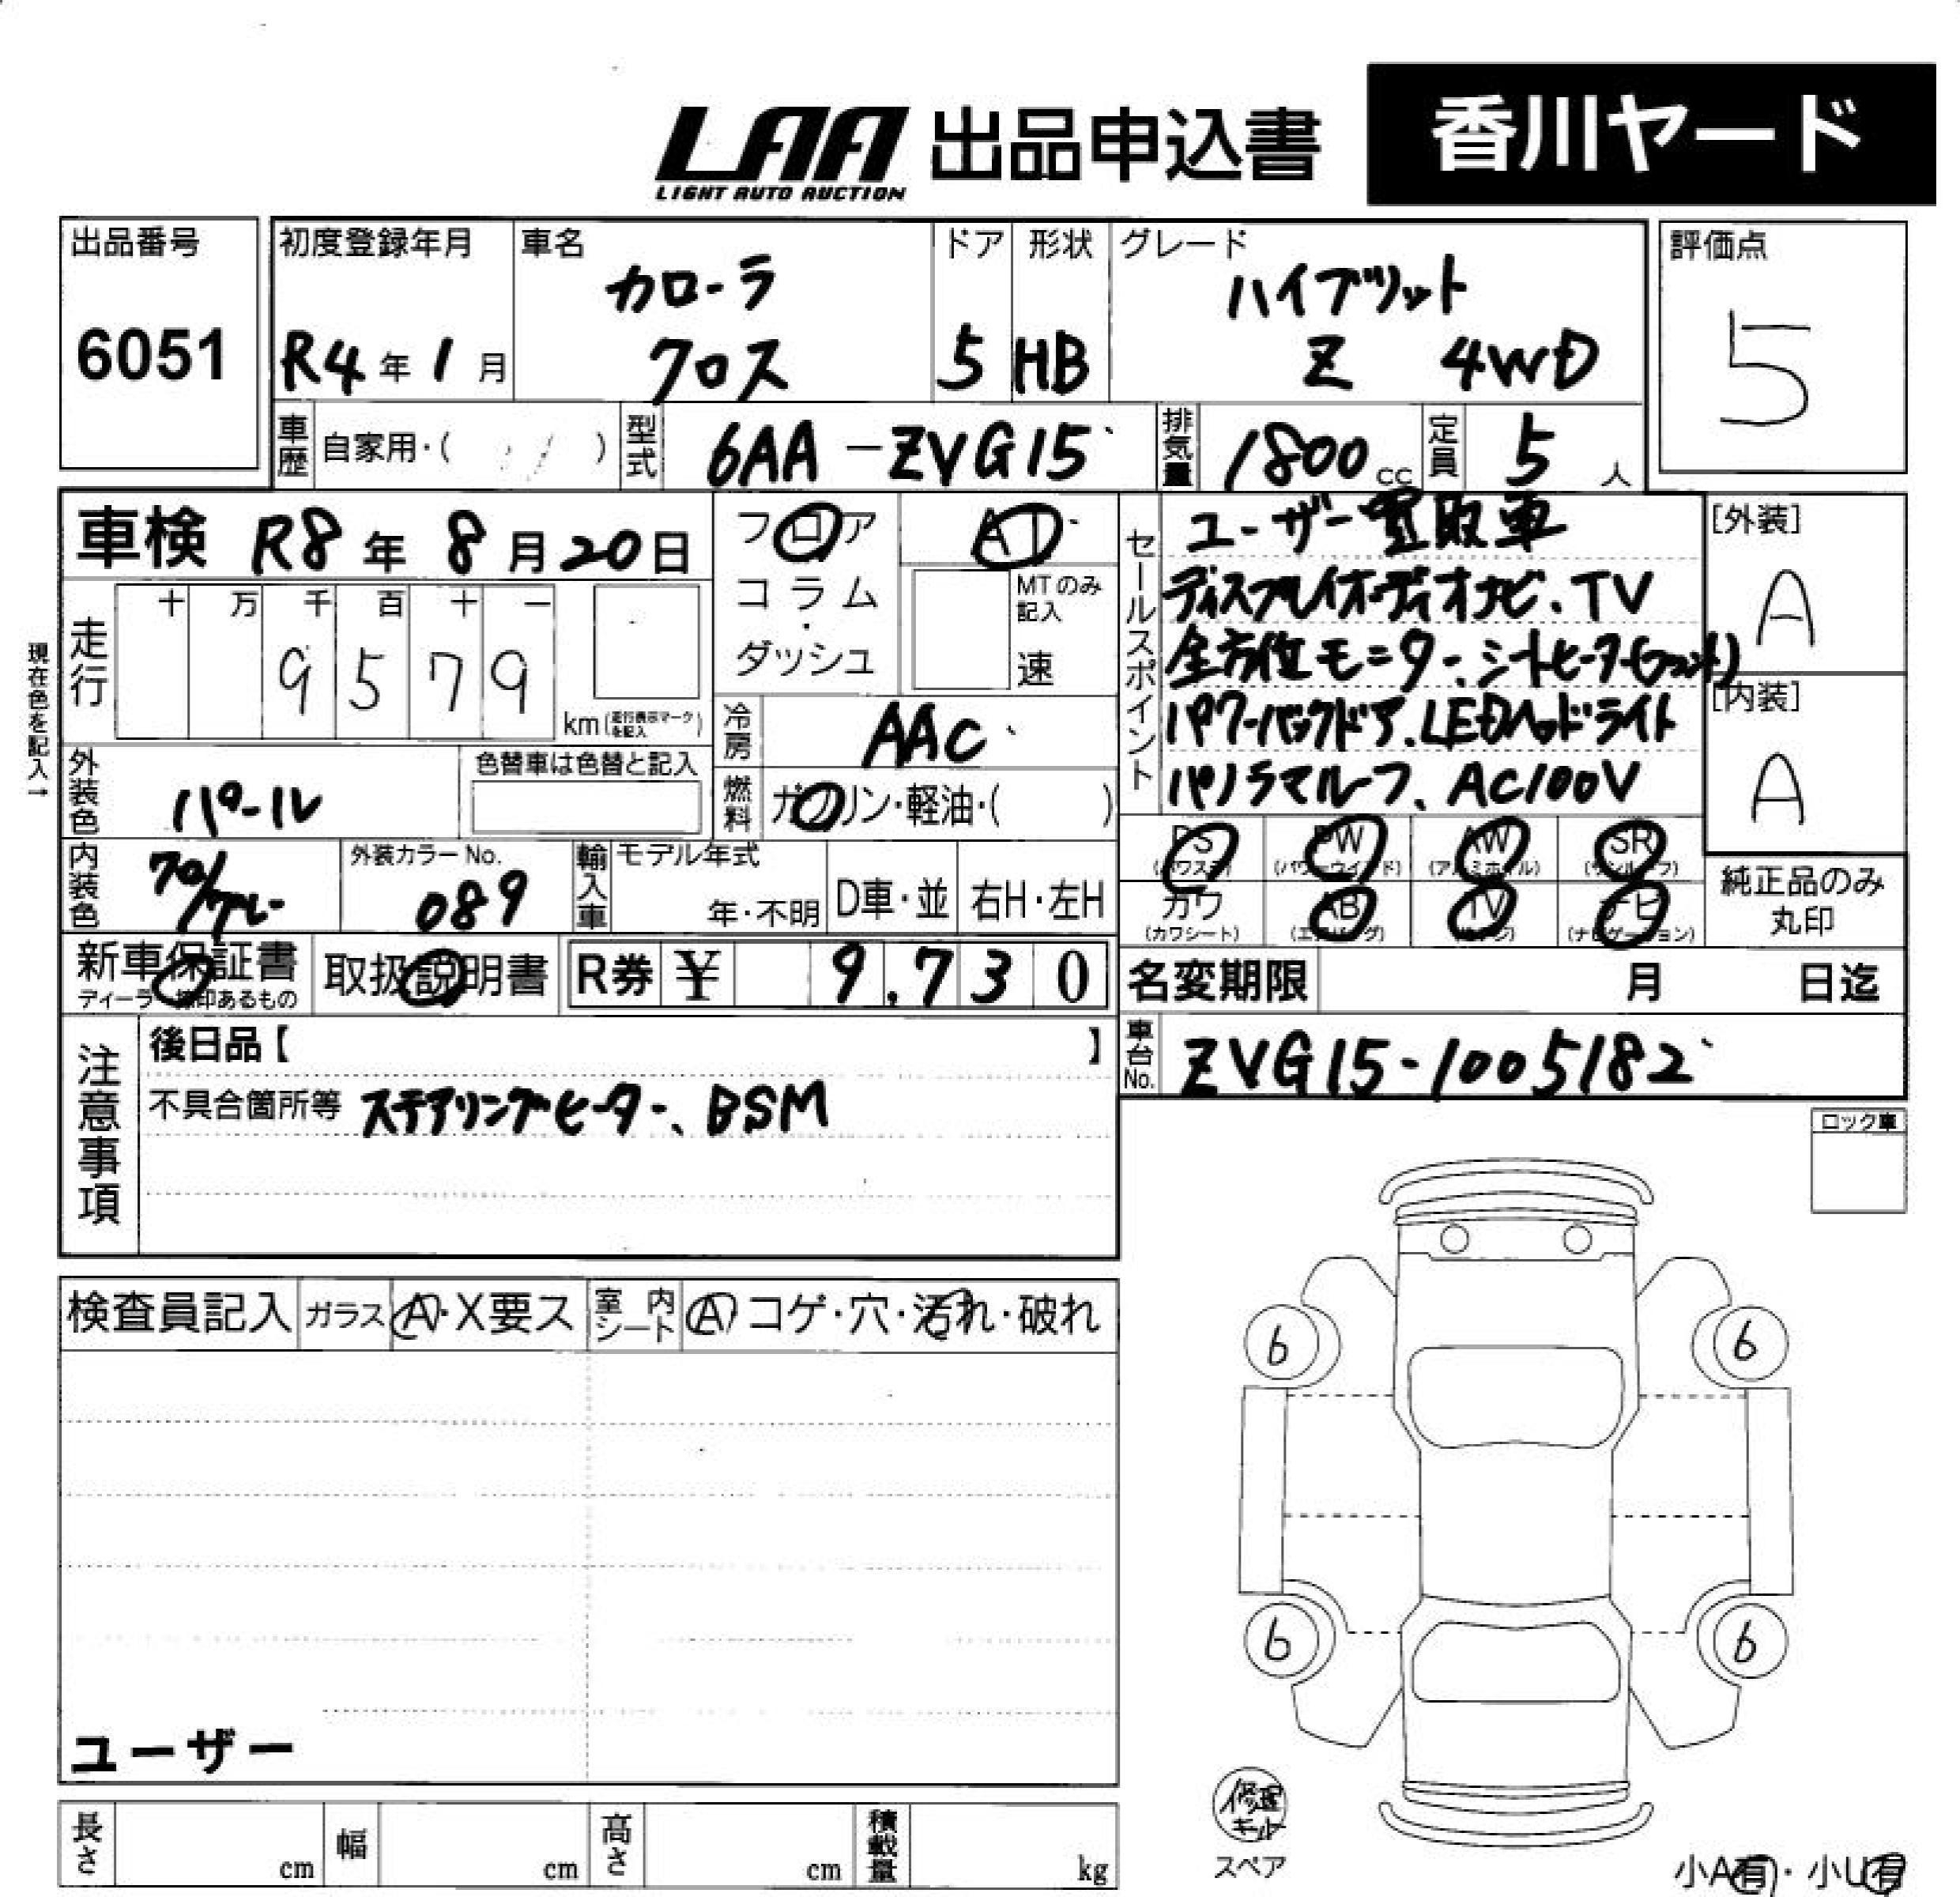 LAA 出品申込書 香川ヤード
LIGHT AUTO AUCTION
出品番号 初度登録年月 車名 ドア 形状 グレード 評価点
カローラ ハイブリット
6051 R4年1月 クロス 5 HB Z 4WD 5
車歴 自家用・( ) 型式 6AA-ZVG15 排気量 1800cc 定員 5人
車検 R8年8月20日 フロア AT
セールスポイント
ユーザー買取車
ディスプレイオーディオナビ、TV
全方位モニター、シートヒーター(フロント)
パワーバックドア、LEDヘッドライト
パノラマルーフ、AC100V
[外装]
A
[内装]
A
走行 十 万 千 百 十 一
9 5 7 9
km(走行表示マークを記入)
コラム・ダッシュ MTのみ記入 速
現在色を記入→
冷房 AAC
外装色 パール 色替車は色替と記入
燃料 ガソリン・軽油・( )
内装色 外装カラーNo. 089
輸入車 モデル年式 年・不明 D車・並 右H・左H
PS PW AW SR
(パワステ) (パワーウインド) (アルミホイル) (サンルーフ)
カワ AB TV ナビ
(カワシート) (エアバッグ) (ナビゲーション)
純正品のみ
丸印
新車保証書 取扱説明書 R券 ¥ 9,730
ディーラー捺印あるもの
名変期限 月 日迄
車台No. ZVG15-1005182
注意事項
後日品【 】
不具合箇所等 ステアリングヒーター、BSM
ロック車
検査員記入 ガラス A・X要ス 室内シート A コゲ・穴・汚れ・破れ
6 6
6 6
ユーザー
修理
キット
スペア
小A有・小U有
長さ cm 幅 cm 高さ cm 積載量 kg